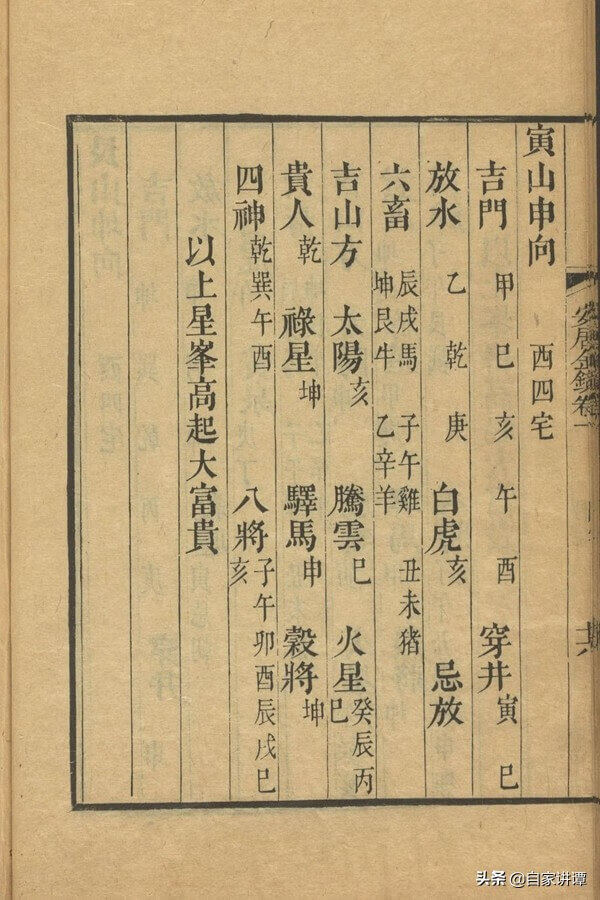 寅山申向　西四宅
吉門　甲　巳　亥　午　酉　穿井　寅　巳
放水　乙　乾　庚　白虎亥　忌放
六畜　辰戌馬　子午雞　丑未猪
坤艮牛　乙辛羊
吉山方　太陽亥　騰雲巳　火星癸辰丙巳
貴人乾　祿星坤　驛馬申　穀將坤
四神乾巽午酉　八將子午卯酉辰戌巳亥
以上星峯高起大富貴
安居金鏡卷一
头条 @自家讲谭